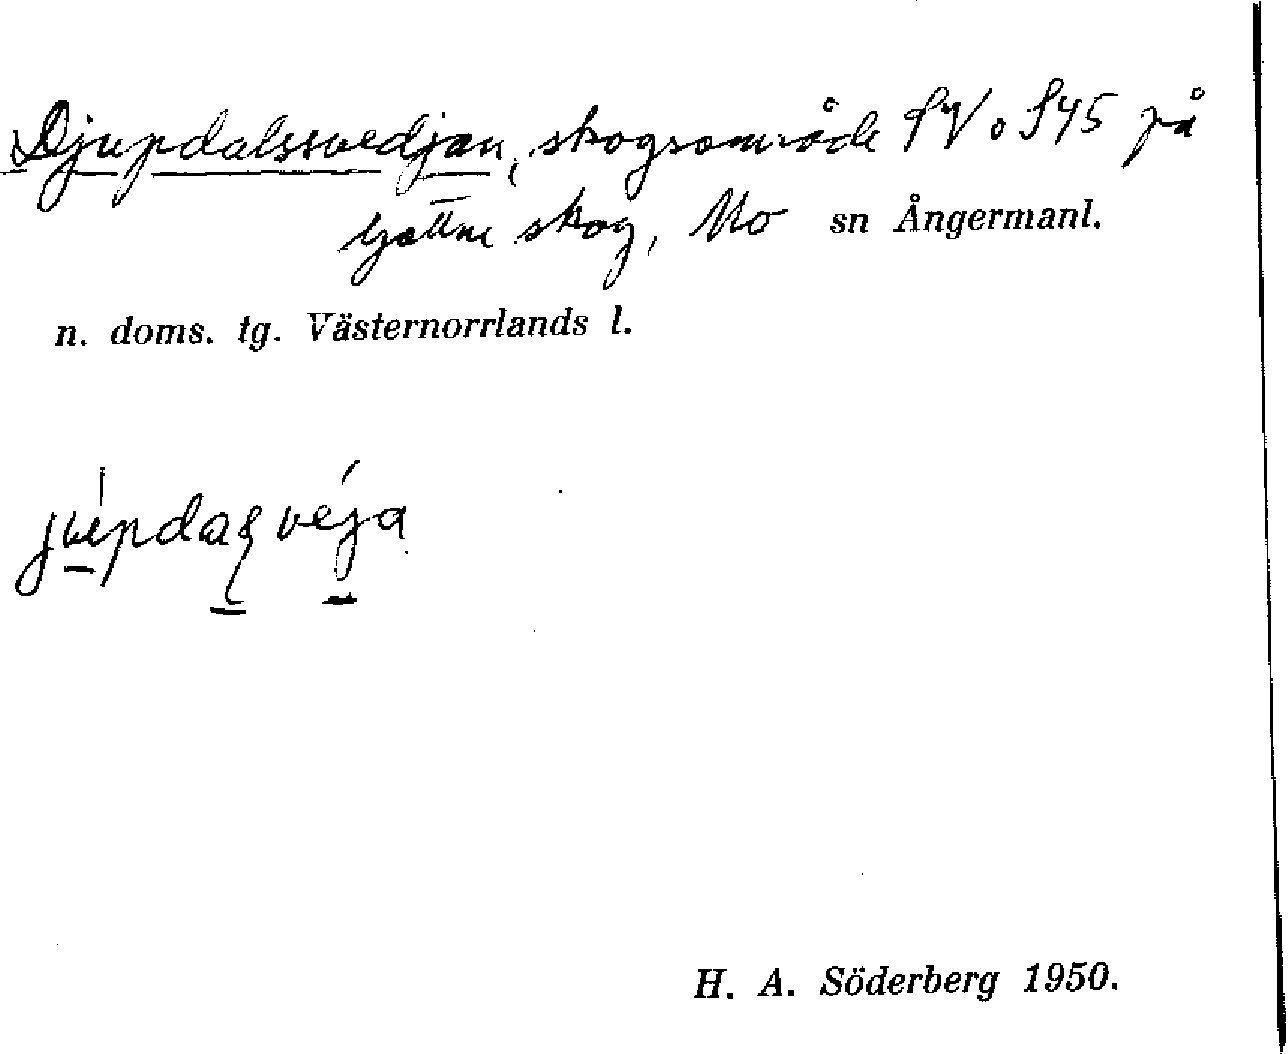 Djupdalssvedjan, skogsområde SV o S45 på
Gottne skog, Mo sn Ångermanl.
n. doms. tg. Västernorrlands l.
H. A. Söderberg 1950.